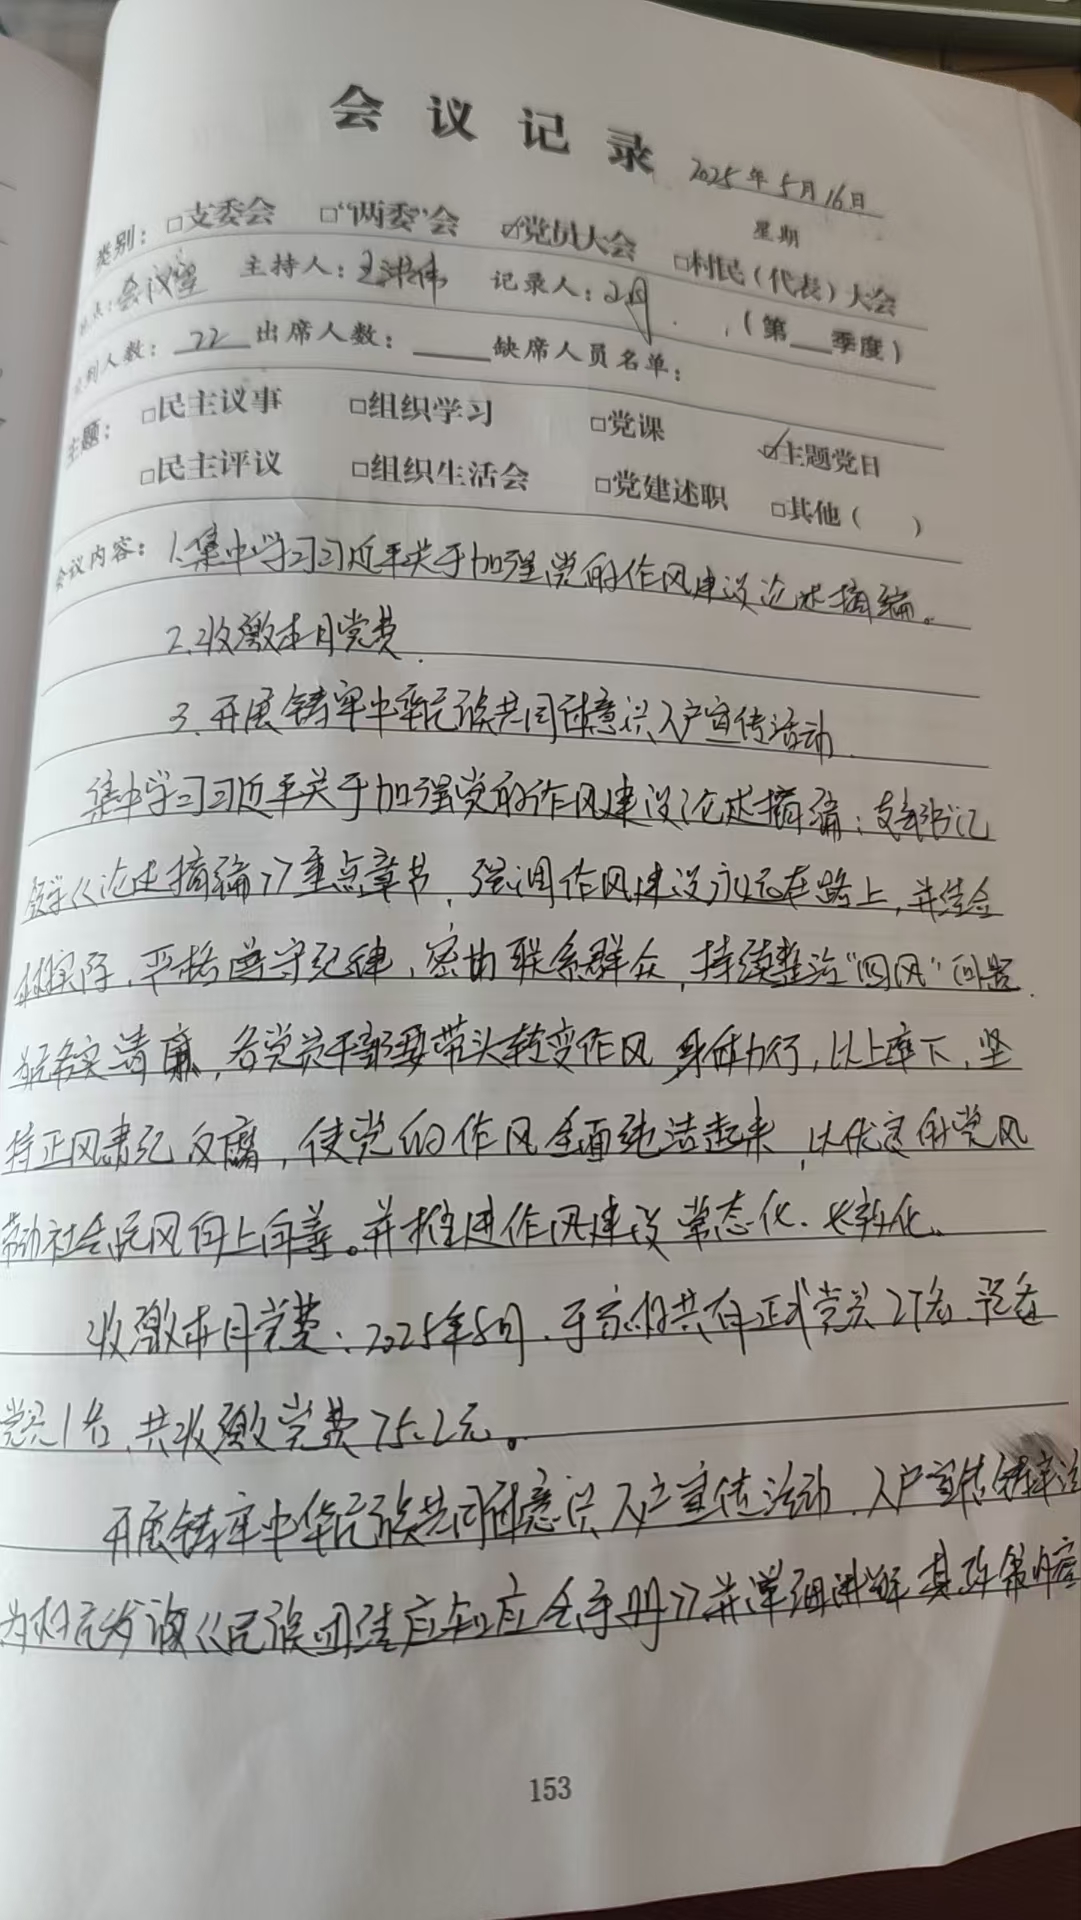 会议记录
2025年5月16日
类别：□支委会 □“两委”会 ☑党员大会 □村民（代表）大会
星期
地点：会议室 主持人：王洪伟 记录人：（第___季度）
应到人数：22 出席人数：____ 缺席人员名单：
主题：□民主议事 □组织学习 □党课 ☑主题党日
□民主评议 □组织生活会 □党建述职 □其他（ ）
会议内容：1.集中学习习近平关于加强党的作风建设论述摘编。
2.收缴本月党费.
3.开展铸牢中华民族共同体意识入户宣传活动.
集中学习习近平关于加强党的作风建设论述摘编：支部书记
领学《论述摘编》重点章节，强调作风建设永远在路上，并结合
实际，严格遵守纪律，密切联系群众，持续整治“四风”问题.
务实清廉，各党员干部要带头转变作风，身体力行，以上率下，坚
持正风肃纪反腐，使党的作风全面纯洁起来，以优良的党风
带动社会民风向上向善。并推进作风建设常态化、长效化。
收缴本月党费：2025年5月，共有正式党员27名，预备
党员1名，共收缴党费75.2元。
开展铸牢中华民族共同体意识入户宣传活动，入户宣传
为村民发放《民族团结应知应会手册》并详细讲解其政策内容
153